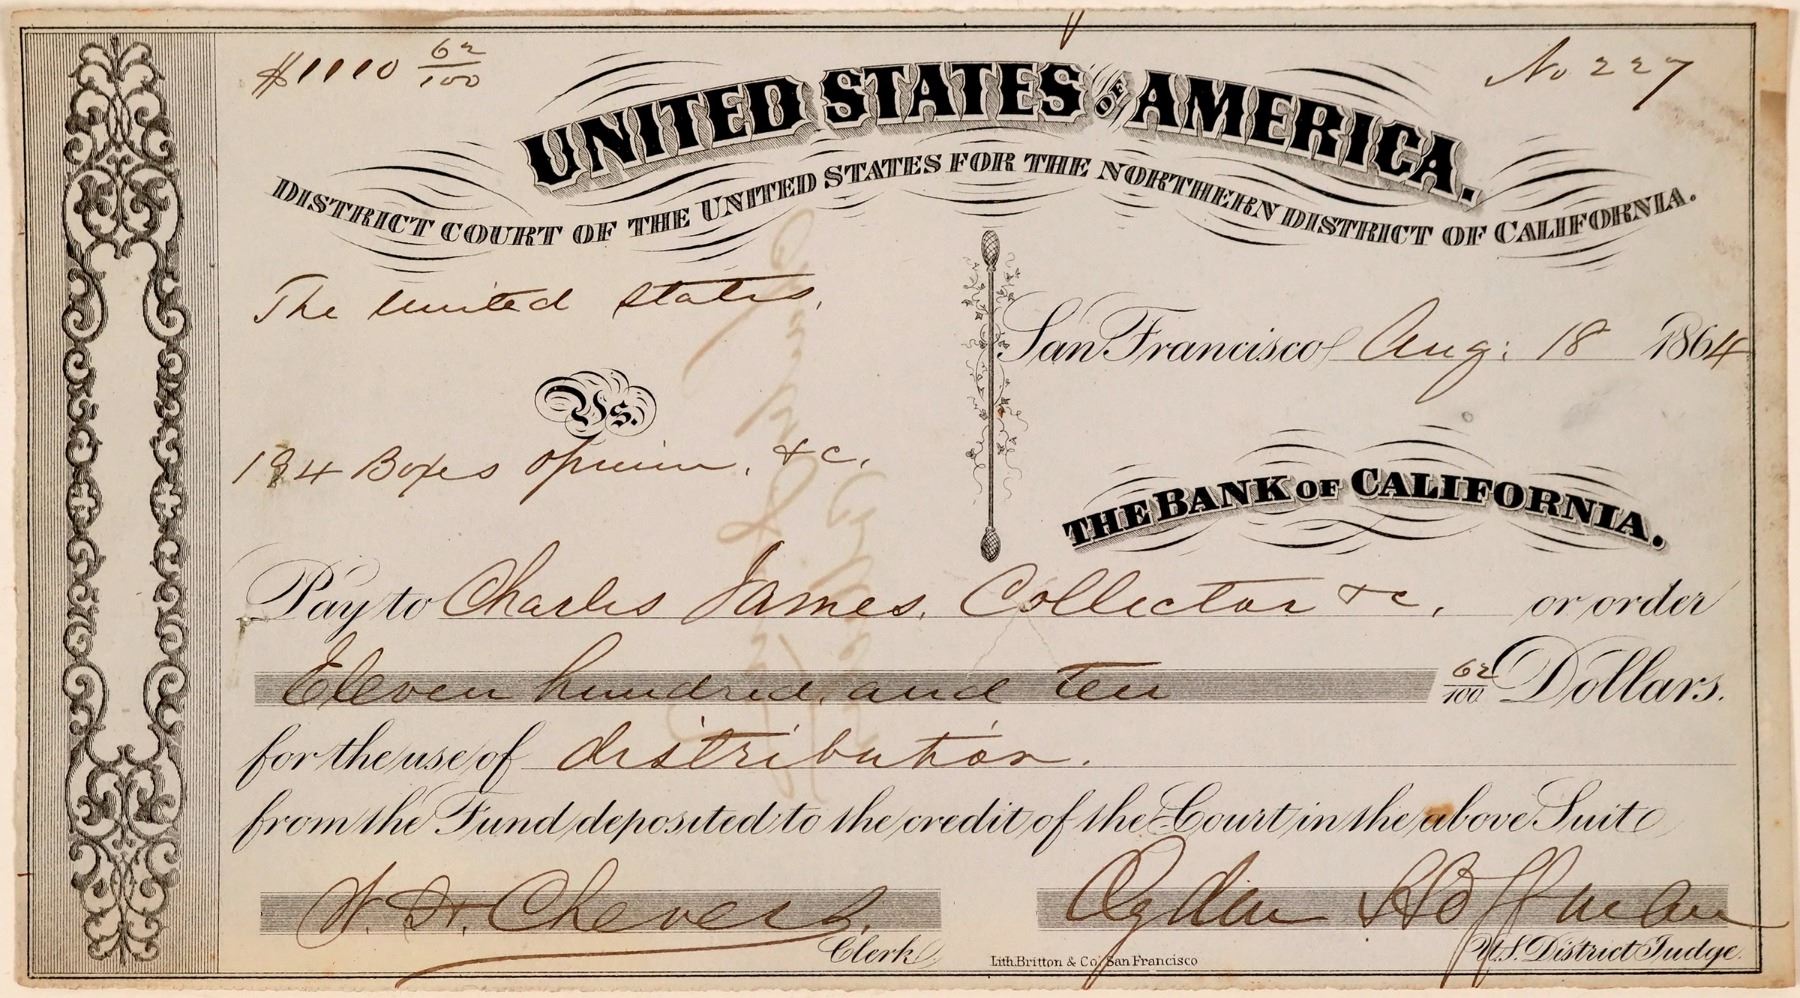 $1110 62/100
No 227
UNITED STATES OF AMERICA.
DISTRICT COURT OF THE UNITED STATES FOR THE NORTHERN DISTRICT OF CALIFORNIA.
The United States,
San Francisco Aug: 18 1864
Vs.
194 Boxes opium, &c,
THE BANK OF CALIFORNIA.
Pay to Charles James, Collector &c, or order
Eleven hundred and ten 62/100 Dollars.
for the use of distribution.
from the Fund deposited to the credit of the Court in the above Suit
W. H. Chevers, Ogden Hoffman
Clerk Lith. Britton & Co. San Francisco U.S. District Judge.